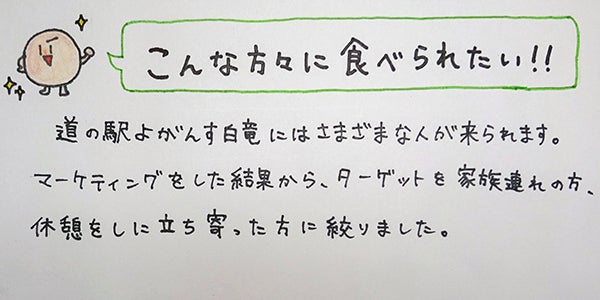 こんな方々に食べられたい!!
道の駅よがんす白竜にはさまざまな人が来られます。
マーケティングをした結果から、ターゲットを家族連れの方、
休憩をしに立ち寄った方に絞りました。